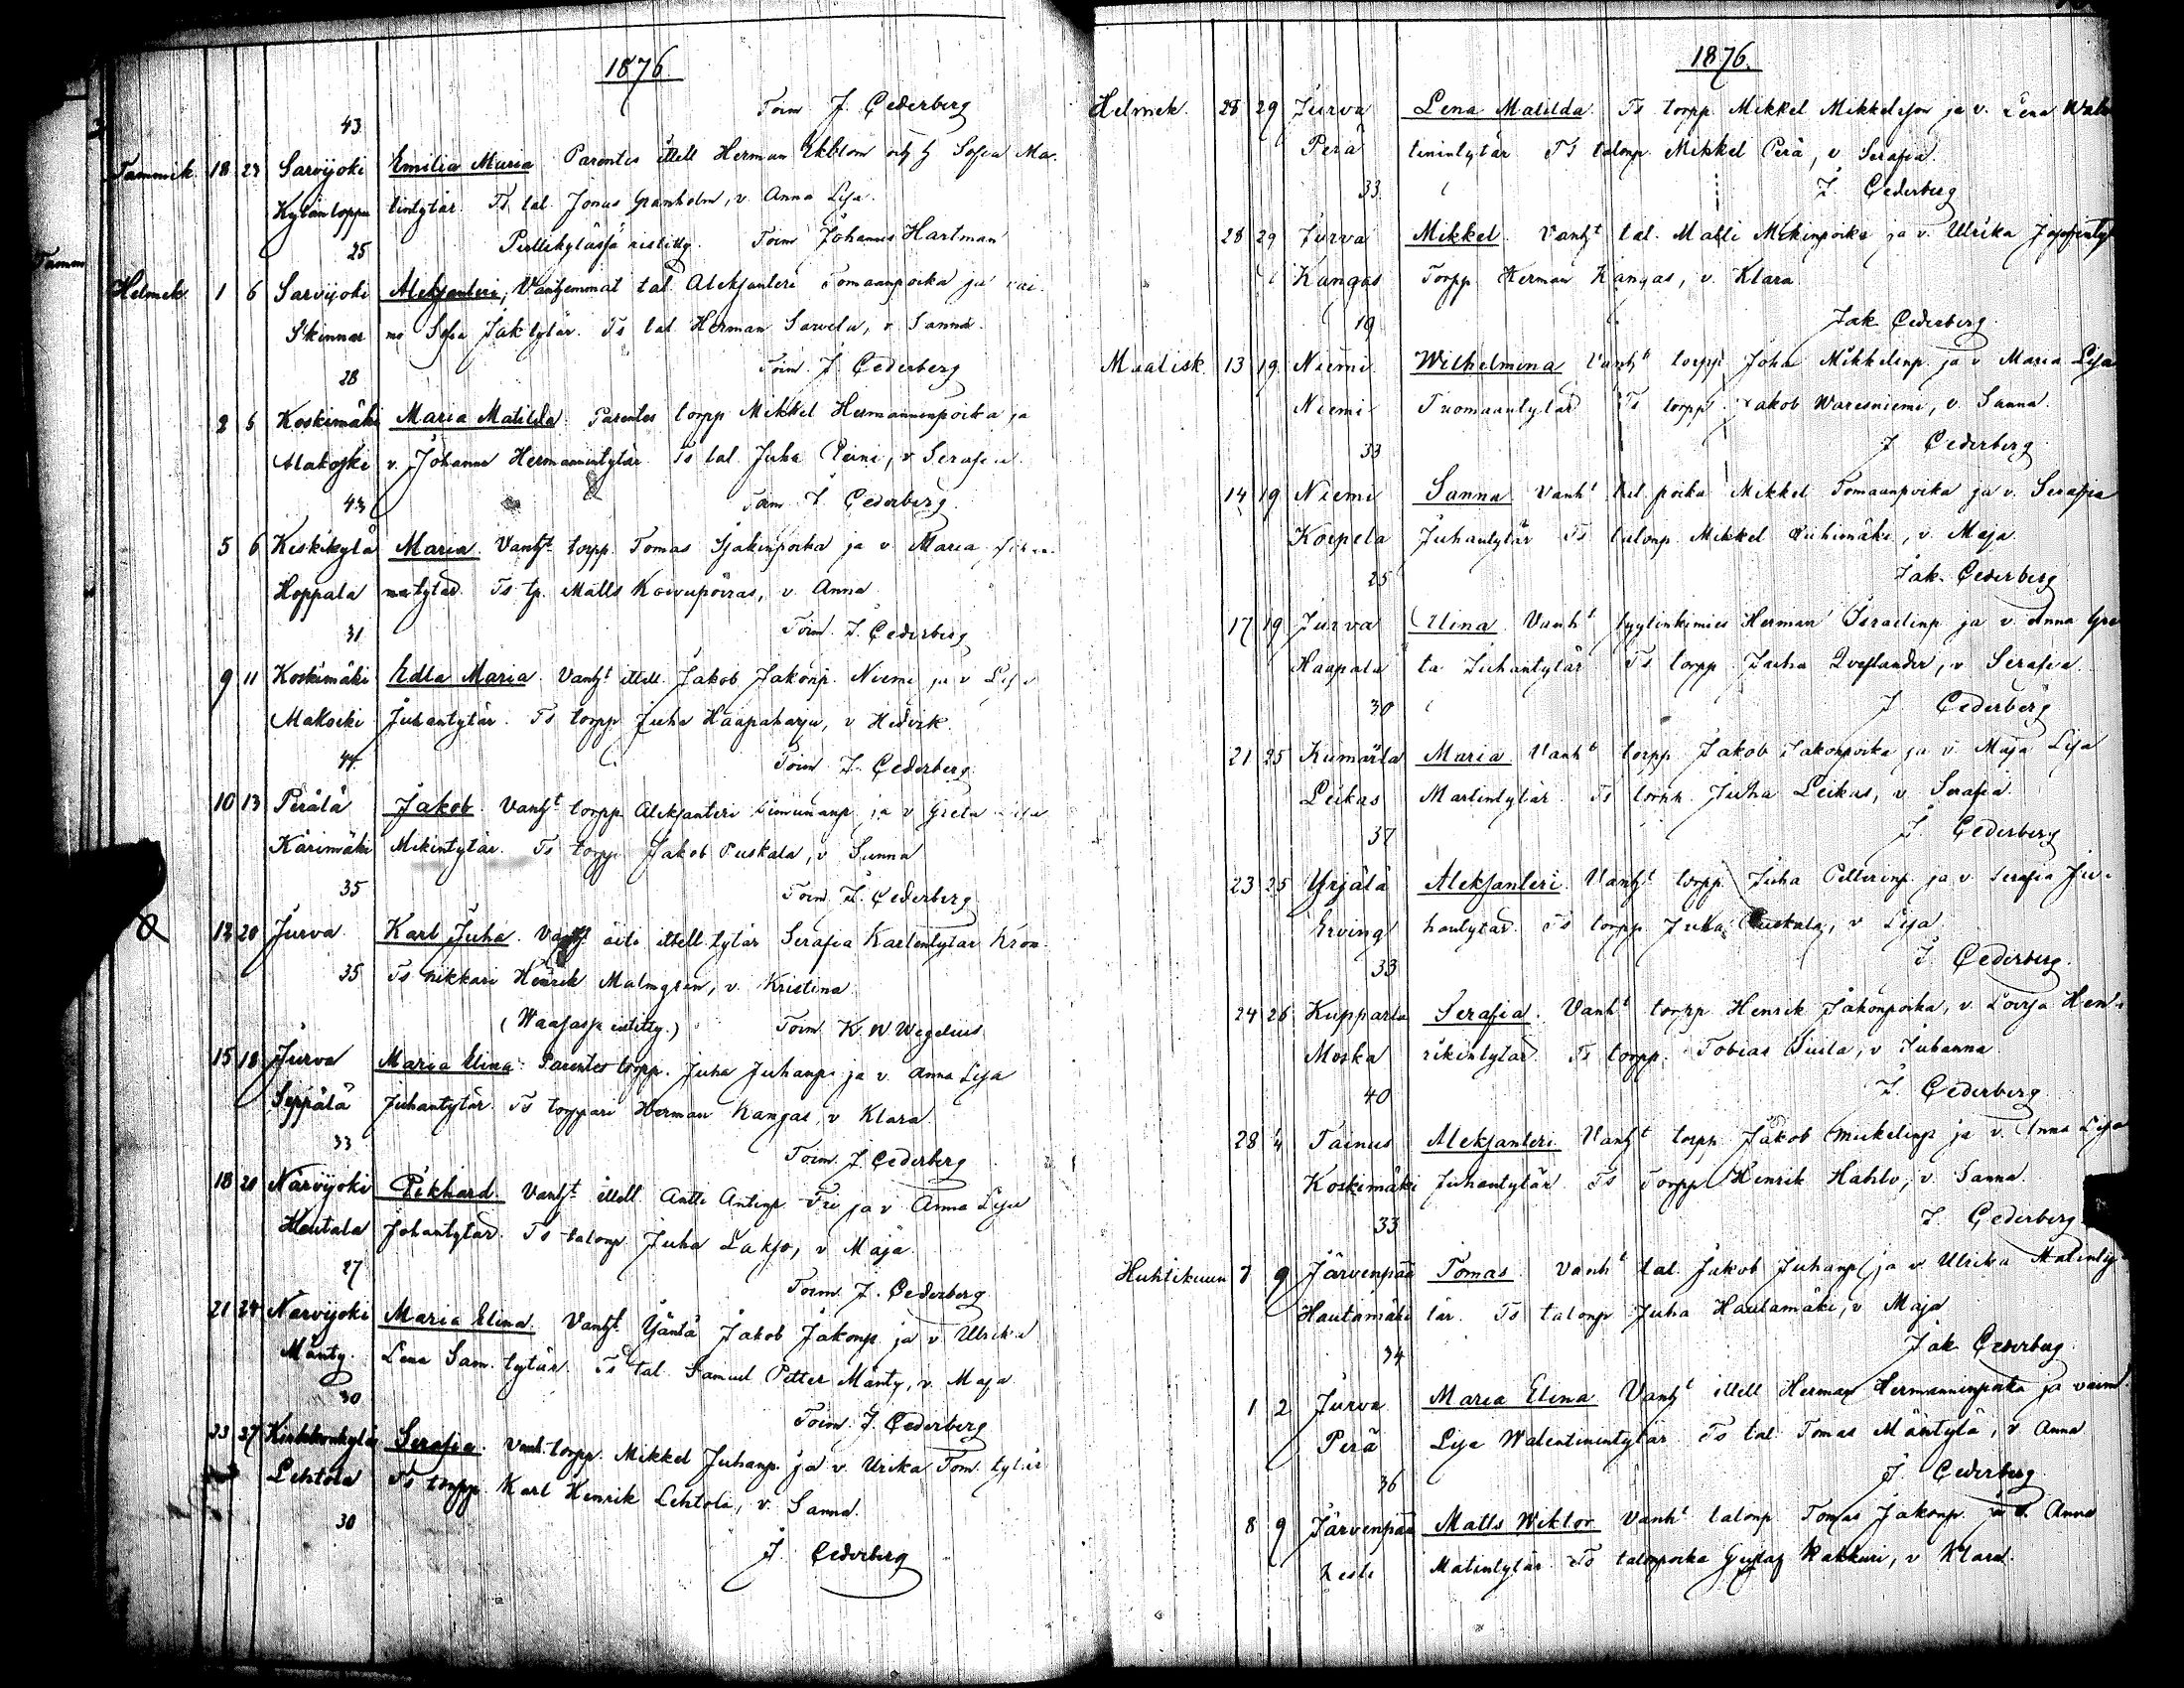 1876
Toim J. Cederberg
43
Tammik. 18 23 Sarvijoki Emilia Maria Parentes ittell Herman Ekblom och h Sofia Ma.
Kylänloppu tintytär. Ts tal. Jonas Granholm, v. Anna Lisa.
25 Toim Johannes Hartman
Helmek 1 6 Sarvijoki Aleksanteri, Vanhemmat tal. Aleksanteri Tomaanpoika ja vai.
Skinnar mo Sofia Jak.tytär. Ts tal. Herman Sarvela, v Sanna.
28 Toim. J. Cederberg
2 5 Koskimäki Maria Matilda. Parentes torpp Mikkel Hermanninpoika ja
Alakoski v. Johanna Hermannintytär. Ts tal. Juha Peini, v Serafia.
43 Toim J Cederberg
5 6 Keskikylä Maria. Vanht torpp. Tomas Isakinpoika ja v. Maria
Hoppala Ts tp. Matts Koivuporras, v. Anna
31 Toim. J. Cederberg
9 11 Koskimäki Edla Maria. Vanht ittell. Jakob Jakonp. Niemi ja v Lisa
Makoski Juhantytär. Ts torpp Juha Haapaharju, v Hedvik.
44 Toim. J. Cederberg
10 13 Perälä Jakob. Vanht torpp Aleksanteri Simunanp ja v Greta Lisa
Karimäki Mikintytär. Ts torpp. Jakob Puskala, v Sanna
35 Toim J. Cederberg
20 Jurva Karl Juha. äiti ittell. tytär Serafia Karlentytär
35 Ts nikkari Henrik Malmgren, v. Kristina
(Waasassa ) Toim. K. W Wegelius
15 18 Jurva Maria Elina. Parentes torpp. Juha Juhanp. ja v. Anna Lisa
Seppälä Juhantytär. Ts torppari Herman Kangas, v Klara.
33 Toim. J. Cederberg
18 20 Närvijoki Rikhard. Vanht ittell. Antti Antinp ja v Anna Lisa
Hautala Johantytär. Ts talonp. Juha Lakso, v Maja.
27 Toim. J. Cederberg
21 24 Närvijoki Maria Elina. Vanht. Jakob Jakonp. ja v. Ulrika
Mänty. Lena Sam. tytär. Ts tal. Samuel Petter Mänty, v. Maja
30 Toim. J. Cederberg
23 27 Serafia. Vanh. torpp. Mikkel Juhanp. ja v. Ulrika Tom. tytär
Lehtola Ts torpp. Karl Henrik Lehtola, v. Sanna.
30 J. Cederberg
1876.
Helmek. 28 29 Jurva Lena Matilda. Ts torpp. Mikkel Mikkelsson ja v. Lena Walen
Perä tinintytär Ts talonp. Mikkel Perä, v Serafia.
33 J. Cederberg
28 29 Jurva Mikkel. Vanht tal. Matti Mikinpoika ja v. Ulrika Josefintyt
Kangas Torpp Herman Kangas, v. Klara.
19 Jak Cederberg
Maalisk. 13 19 Niemi Wilhelmina Vanht torpp. Johan Mikkelinp. ja v. Maria Lisa
Niemi Tuomaantytär Ts torpp. Jakob Waresniemi, v. Sanna
33 J Cederberg
14 19 Niemi Sanna Vanht tal. poika Mikkel Tomaanpoika ja v. Serafia
Korpela Juhantytär Ts talonp. Mikkel, v. Maja.
25 Jak. Cederberg
17 19 Jurva Elina. Vanht Herman Israelinp. ja v. Anna Gre
Haapala ta Juhantytär Ts torpp Juha, v Serafia.
30 J Cederberg
21 25 Kumarla Maria Vanht torpp Jakob Jakonpoika ja v. Maja Lisa
Leikas Martintytär. Ts torpp. Juha Leikas, v Serafia.
37 J. Cederberg
23 25 Yrjälä Aleksanteri. Vanht torpp. Juha Petterinp. ja v. Serafia Ju-
Erving hantytär. Ts torpp Juha Puskala, v Lisa.
33 J. Cederberg.
24 26 Kupparla Serafia. Vanht torpp Henrik Jakonpoika, v. Lovisa Hen
Moska rikintytär. Ts torpp. Tobias, v Juhanna
40 J. Cederberg
28 4 Tainus Aleksanteri. Vanht torpp Jakob Mikelinp. ja v. Anna Lisa
Koskimäki Juhantytär. Ts Torpp Henrik Hahlo, v. Sanna.
33 J. Cederberg
Huhtikuun 7 9 Järvenpää Tomas. Vanht tal. Jakob Juhanp. ja v Ulrika Matinty-
Hautamäki tär. Ts talonp Juha Hautamäki, v Maja
34 Jak Cederberg
1 2 Jurva Maria Elina Vanht ittell Herman Hermanninpoika ja vaim.
Perä Lisa Walentinintytär Ts tal Tomas Mäntylä, v Anna
36 J. Cederberg
8 9 Järvenpää Matts Wiktor Vanht talonp. Tomas Jakonp. ja v. Anna
Matintytär Ts talonpoika Gustaf Kakkuri, v Klara.